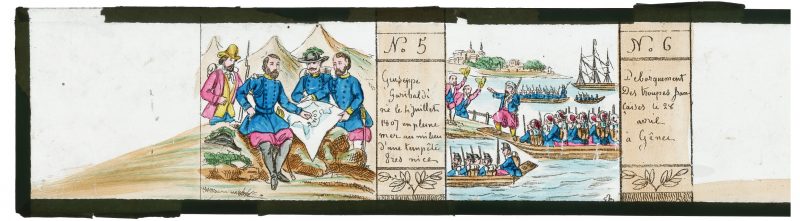 No 5
Giuseppe
Garibaldi
né le 4 juillet
1807 en pleine
mer au milieu
d'une tempête
près nice
No 6
Debarquement
Des troupes fran
caises le 28
avril
à Gênes